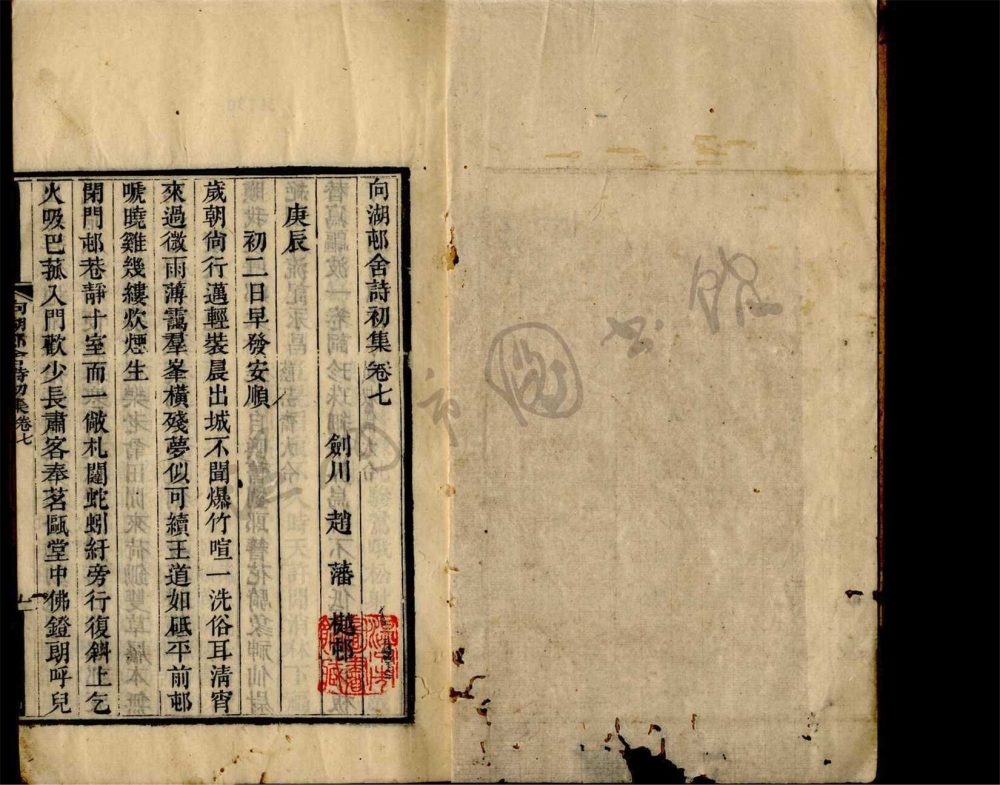 向湖邨舍詩初集卷七
劍川 趙藩 樾邨
庚辰
初二日早發安順
歲朝尙行邁輕裝晨出城不聞爆竹喧一洗俗耳清宵
來過微雨薄靄羣峯橫殘夢似可續王道如砥平前邨
唬曉雞幾縷炊煙生
閉門邨巷靜十室而一敞札闥蛇蚓紆旁行復斜上乞
火吸巴菰入門歡少長肅客奉茗甌堂中佛鐙朗呼兒
向湖邨舍詩初集卷七
一
市圖書館